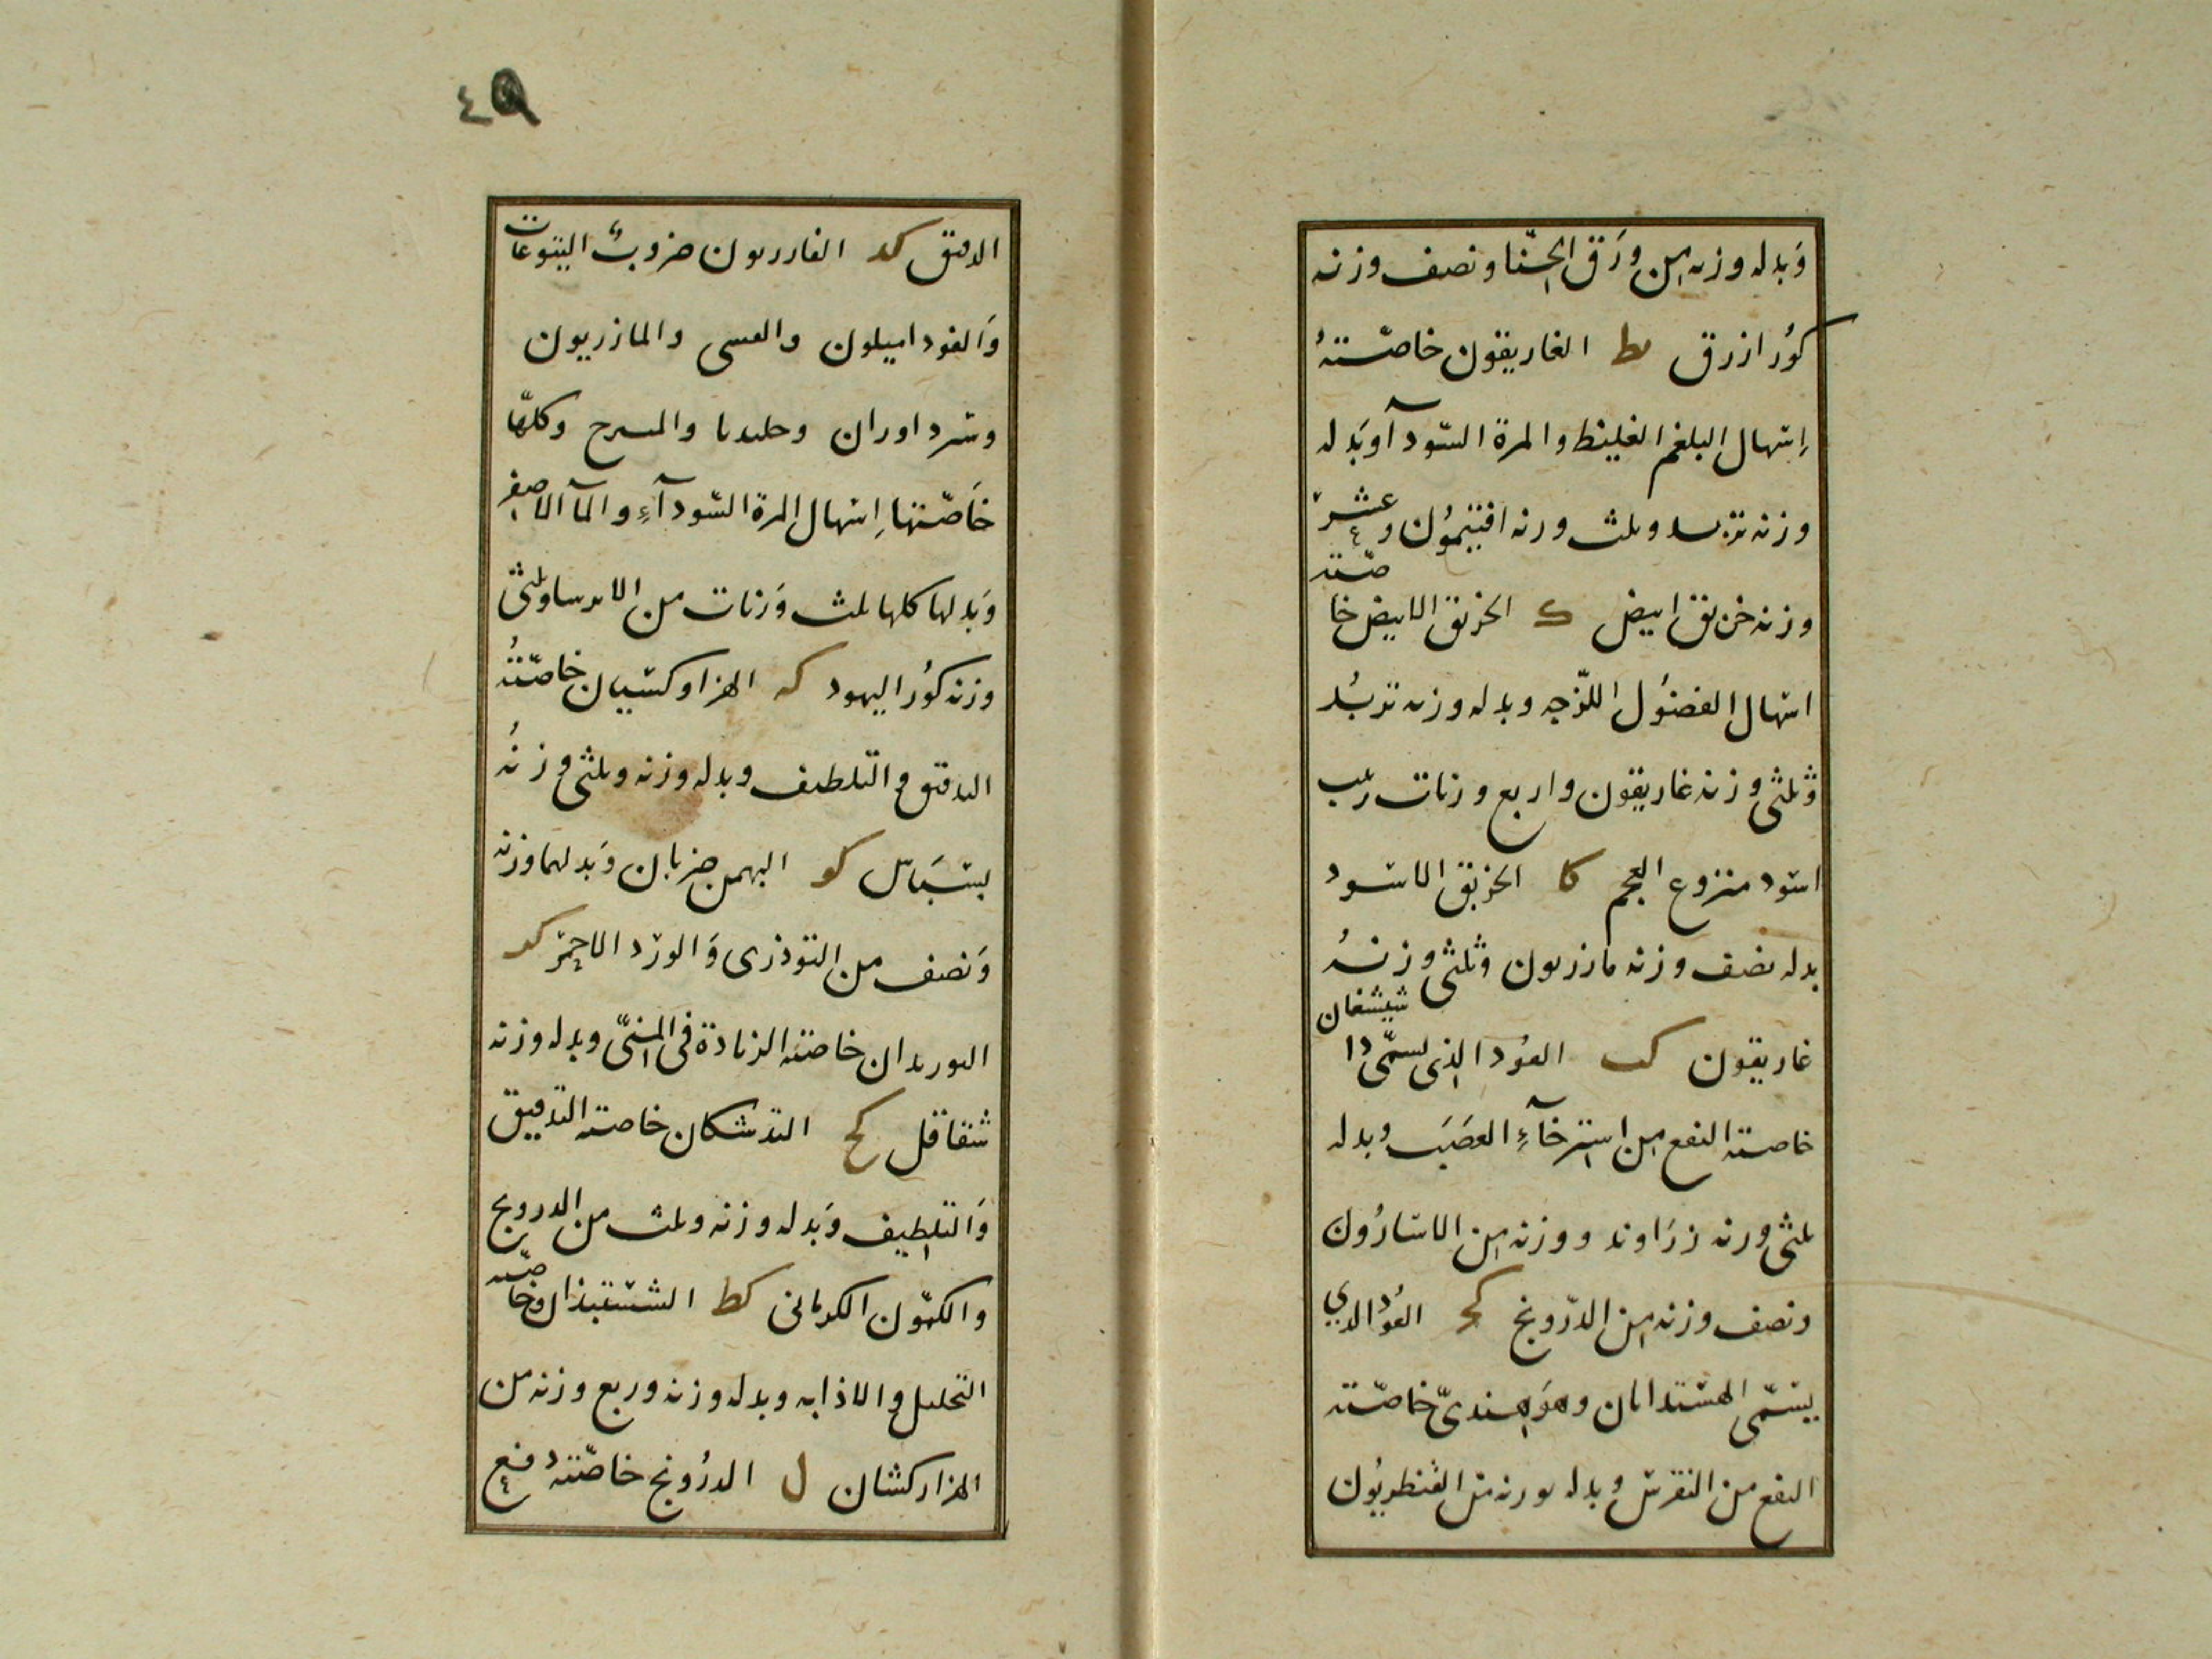 وَبدله وزنه من ورَق الحنّا ونصف وزنه
كوُر ازرق يط الغاريقون خاصّتهُ
اِسهال البلغم الغليظ والمرة السّودآ وبَدله
وزنه تربد وثلث وزنه افتيمُون وعشر
وزنه خربق ابيض ك الخربق الابيض خاصّته
اسهال الفضُول اللّزجه وبدله وزنه تربُد
وثلثى وزنه غاريقون واربع وزنات زبيب
اسود منزوع العجم كا الخربق الاسود
بدله نصف وزنه مازريون وثلثى وزنهُ
غاريقون كب العوُد الذى يسمّى دا شيشغان
خاصته النفع من استرخآءِ العصَبَ وبدله
ثلثى وزنه زرَاوند ووزنه من الاسارُون
ونصف وزنه من الدّرونج كج العوُد الذي
يسَمّى وهوَ هندىّ خاصّته
النفع من النقرس وبدله بوزنه من القنطريُون
٤٩
كد ضروبُ اليتوعات
وَالمازريون
وكلهّا
خَاصّتها اِسهال المرة السّودآءِ والمآ الاصفر
وَبدلها كلها ثلث وَزنات من الايرسا وثلثى
وزنه كوُر اليهود كه الهزاوكشيان خاصّتهُ
التدقيق والتلطيف وبدله وزنه وثلثى وزنهُ
بسبَاس كو البهمن ضربان وَبدلهما وزنه
وَنصف من التوذرى وَالورد الاحمر كد
البوريدان خاصته الزيادة فى المنىّ وبدله وزنه
شقاقل كح خاصته التدقيق
وَالتلطيف وَبدله وزنه وثلث من الدرونج
والكموّن الكرمانى كط وخاصّته
التحليل والاذابه وبدله وزنه وربع وزنه من
الهزاركشان ل الدرُونج خاصّتهُ نفع